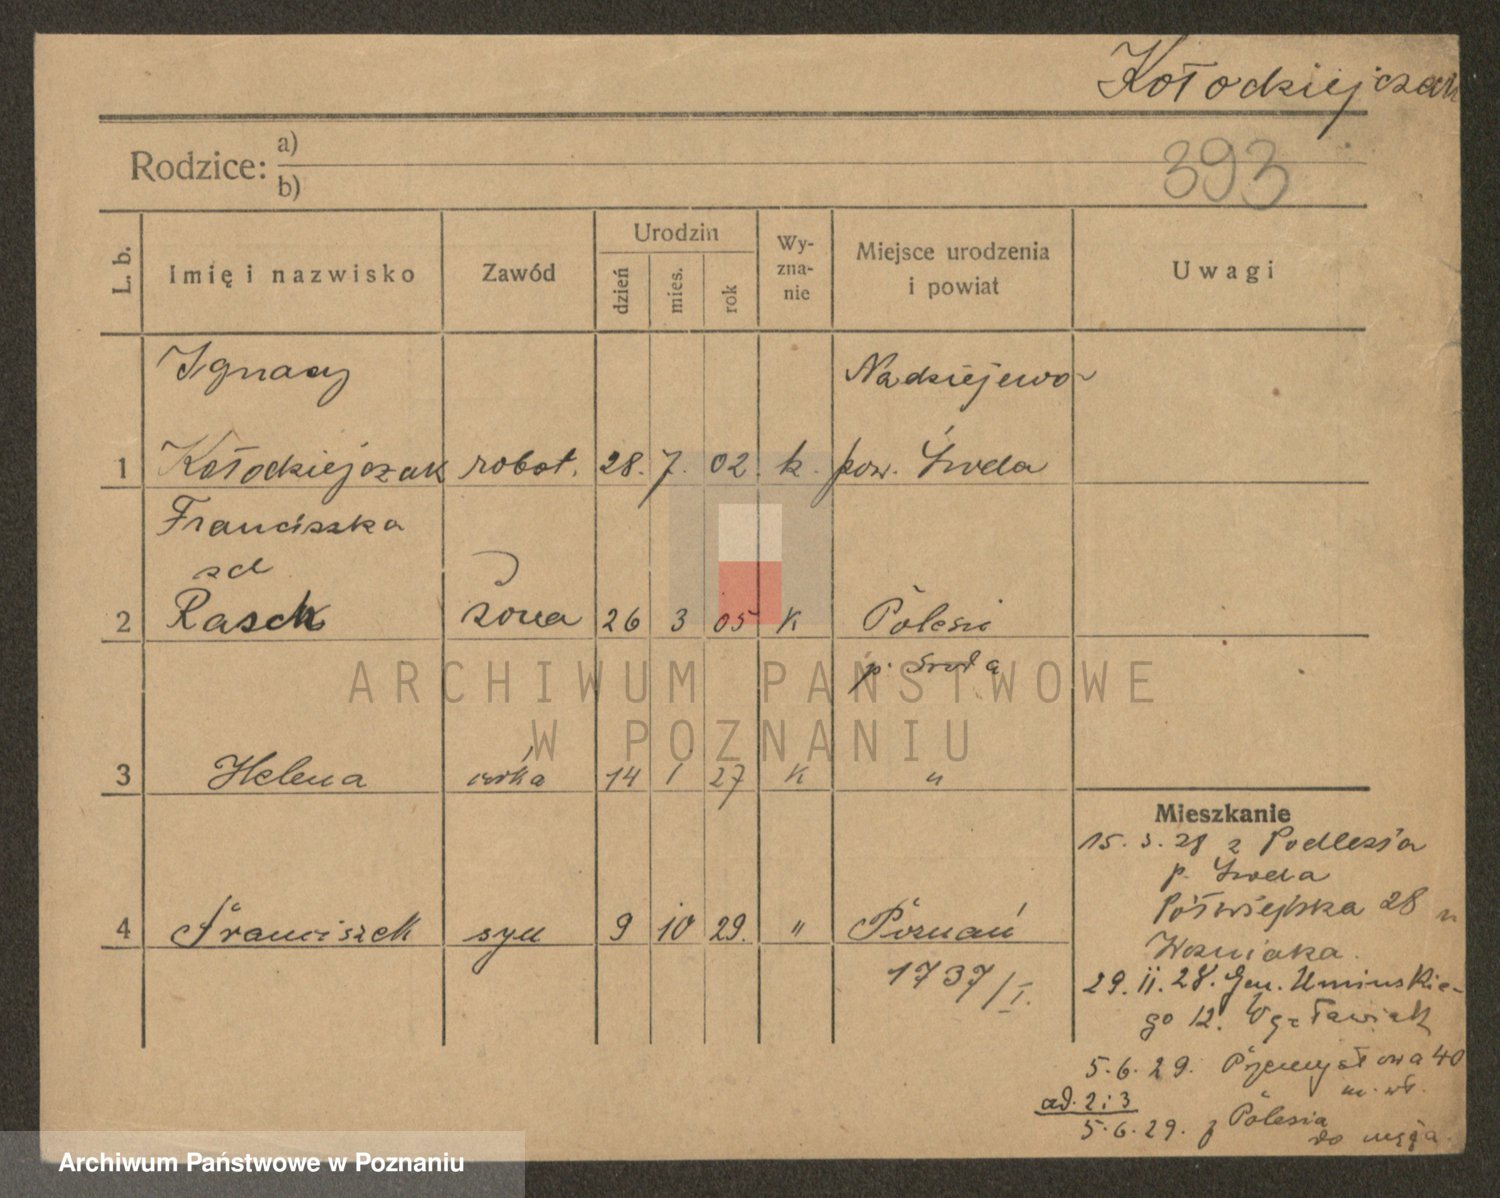 Kołodziejczak
393
Rodzice: a)
b)
L. b. Imię i nazwisko Zawód Urodzin dzień mies. rok Wy-zna-nie Miejsce urodzenia i powiat Uwagi
Ignacy Nadziejewo
1 Kołodziejczak robot. 28. 7. 02. k. pow. Środa
Franciszka
zd
2 Rasch żona 26 3 05 K Polesie
p. Środa
3 Helena córka 14 1 27 K "
Mieszkanie
15. 3. 28 z Podlesia
p. Środa
4 Franciszek syn 9 10 29. " Poznań
1737/I.
28 u
Woźniaka.
29. 11. 28. Gen. Umińskie-
go 12.
5. 6. 29. Przemysłowa 40
m. wł.
ad. 2 i 3
5. 6. 29. z Polesia
do męża.
ARCHIWUM PAŃSTWOWE
W POZNANIU
Archiwum Państwowe w Poznaniu